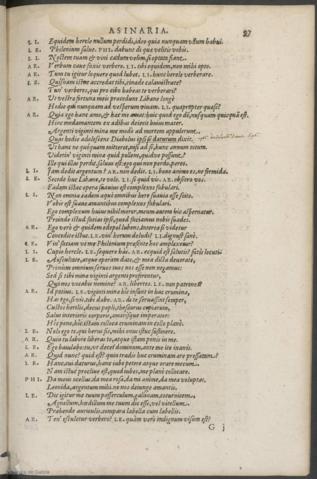 ASINARIA. 27
L I. Equidem hercle nullum perdidi, ideo quia nunquam ullum habui.
L E. Philenium salue. PHI. dabunt di quæ velitis vobis.
L I. Noctem tuam & vini cadum velim, si optata fiant.
A R. Verbum caue faxis verbero. L I. tibi equidem, non mihi opto.
A R. Tum tu igitur loquere quod lubet. L I. hunc hercle verberare.
L E. Quisnam istuc accredat tibi, cinæde calamistrate?
Tun' verberes, qui pro cibo habeas te verberari?
A R. Ut vestræ fortunæ meis præcedunt Libane longe
Hodie qui nunquam ad vesperum viuam. L I. quapropter quæso?
A R. Quia ego hanc amo, & hæc me amat: huic quod ego dê, nusquam quicquam est.
Hinc med amantem ex ædibus deiecit huius mater.
Argenti viginti minæ me modo ad mortem appulerunt,
Quas hodie adolescens Diabolus ipsi daturus dixit,
Ut hanc ne quoquam mitteret, nisi ad se, hunc annum totum.
Videtin' viginti minæ quid pollent, quidve possunt?
Ille qui illas perdit, saluus est: ego qui non perdo, pereo.
L I. Iam dedit argentum? A R. non dedit. L I. bono animo es, ne formida.
L E. Secede huc Libane, te volo. L I. si quid vis. A R. obsecro vos.
Eadem istac opera suauius est complexos fabulari.
L I. Non omnia eadem æque omnibus here suauia esse scito.
Vobis est suaue amantibus complexos fabulari.
Ego complexum huius nihil moror, meum autem hic aspernatur.
Proinde istud facias ipse, quod faciamus nobis suades.
A R. Ego vero & quidem edepol lubens. interea si videtur
Concedite istuc. L E. vin' herum deludi? L I. dignust sane.
L E. Vin' faciam vt me Philenium præsente hoc amplexetur?
L I. Cupio hercle. L E. sequere hac. A R. ecquid est salutis? satis locuti
L E. Auscultate, atque operam date, & mea dicta deuorate.
Primum omnium seruos tuos nos esse non negamus:
Sed si tibi viginti minæ argenti proferentur,
Quo nos vocabis nomine? A R. libertos. L E. non patronos?
A R. Id potius. L E. viginti minæ hic insunt in hac crumina,
Has ego, si vis, tibi dabo. A R. di te seruassint semper,
Custos herilis, decus popli, thesaurus copiarum,
Salus interioris corporis, amorisque imperator:
Hic pone, hic istam colloca cruminam in collo plane.
L E. Nolo ego te, qui herus sis, mihi onus istuc sustinere.
A R. Quin tu labore liberas te, atque istam ponis in me.
L E. Ego baiulabo, tu vt decet dominum, ante me ito inanis.
A R. Quid nunc? quid est? quin tradis huc cruminam pressatum?
L E. Hanc, cui daturus, hanc iube petere atque orare mecum.
Nam istuc procliue est, quod iubes, me plane collocare.
PHI. Da meus ocellus, da mea rosa, da mi anime, da mea voluptas,
Leonida, argentum mihi, ne nos deiunge amantis.
L E. Dic igitur me tuum passerculum, gallinam, coturnicem,
Agnellum, hœdillum me tuum dic esse, vel vitellum.
Prehende auriculis, compara labella cum labellis.
A R. Ten' osculetur verbero? L E. quàm vero indignum visum est?
G j